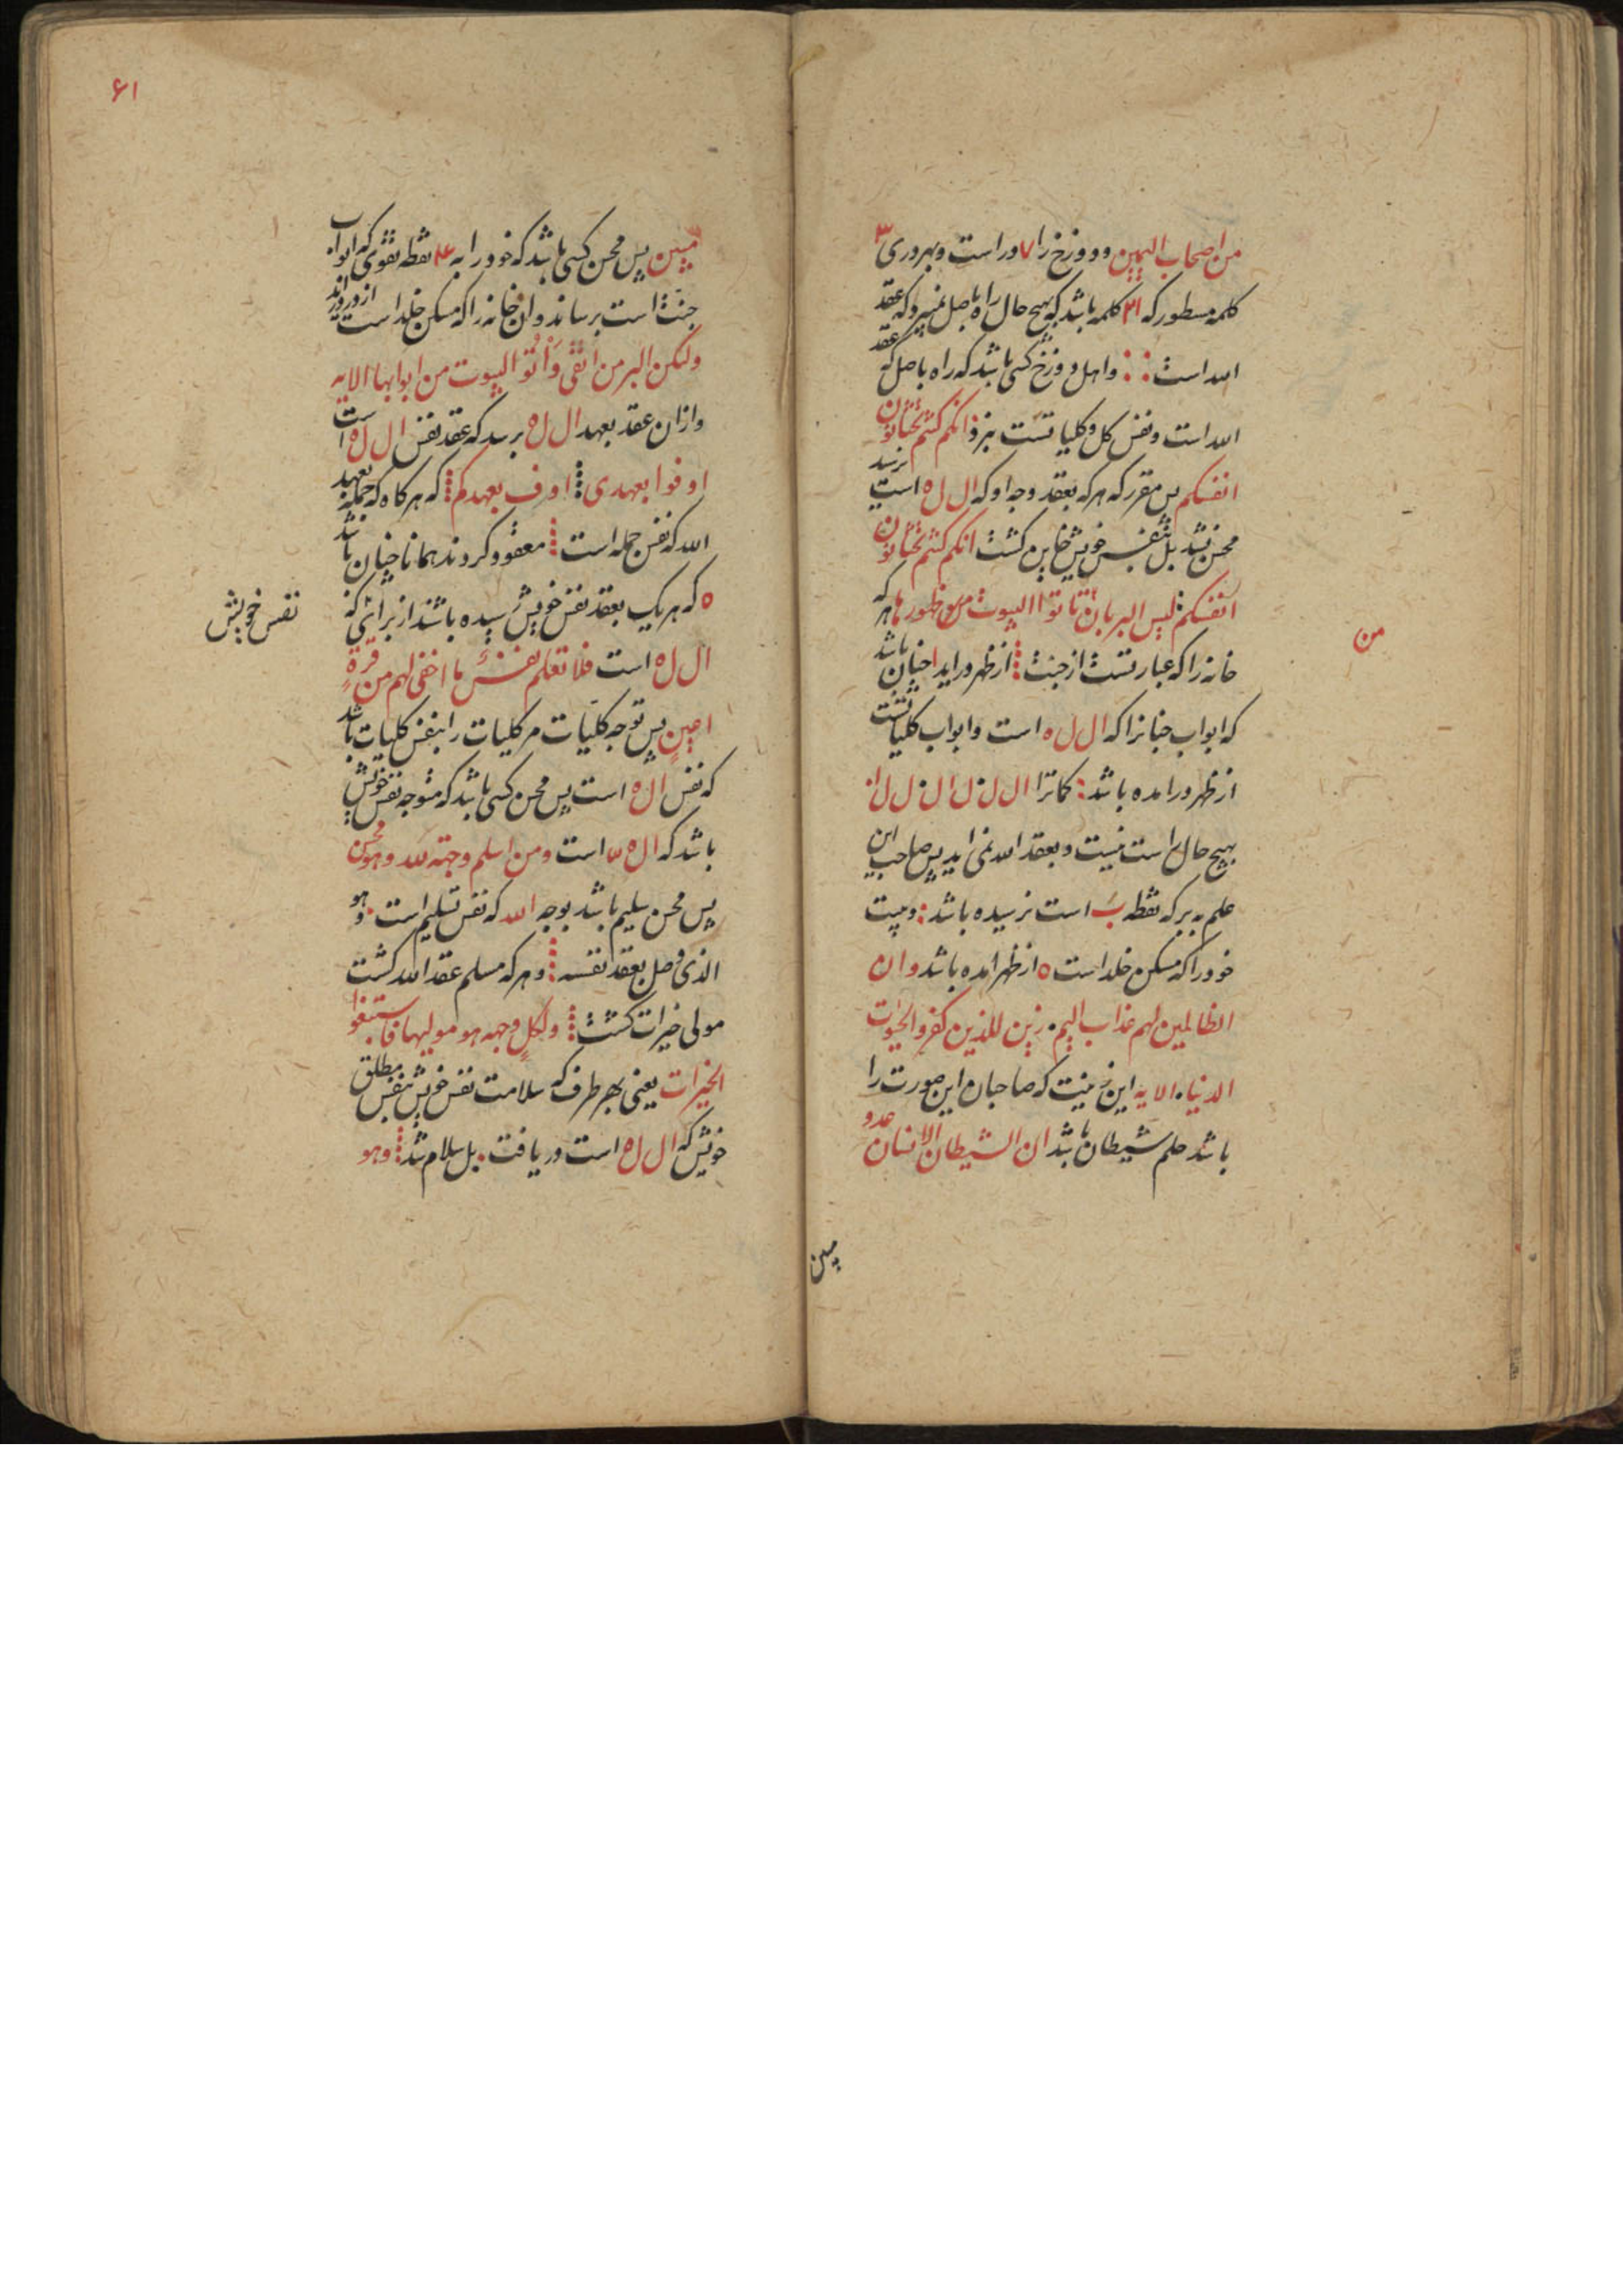 من اصحاب الیمین و دوزخ را ۷ در است و بهر دری ۳
کلمه مسطور که ۳۱ کلمه باشد که بهیچ حال راه باصل نمیبرد که عقد
الله است و اهل دوزخ کسی باشد که راه باصل که عقد
الله است و نفس کل و کلیاتست نبرد انکم کنتم تختانون
انفسکم پس مقرر که هر که بعقد وجه او که ال ل ه است نرسد
محسن نشد بل بنفس خویش خاین گشت انکم کنتم تختانون
انفسکم لیس البر بان تاتوا البیوت من ظهورها هر که
من
خانه را که عبارتست از جنت از ظهر در اید چنان باشد
که ابواب جنانرا که ال ل ه است و ابواب کلیاتست
از ظهر در امده باشد
بهیچ حال راست نیست و بعقد الله نمی اید پس صاحب این
علم به بر که نقطه ب است نرسیده باشد و بیت
خود را که مسکن خلد است ه از ظهر امده باشد و ان
الظالمین لهم عذاب الیم زین للذین کفروا الحیوت
الدنیا الایه این زینت که صاحبان این صورت را
باشد حلم شیطان باشد ان الشیطان الانسان عدو
مبین
۶۱
مبین پس محسن کسی باشد که خود را به نقطه تقوی که ابواب
جنت است برساند و ان خانه را که مسکن خلد است از در در اید
ولکن البر من اتقی واتوا البیوت من ابوابها الایه
و ازان عقد بعهد ال ل ه برسد که عقد نفس ال ل ه است
اوفوا بعهدی اوف بعهدکم که هر کاه که جمله بعهد
الله که نفس جمله است معقود کردند همانا چنان باشد
ه که هر یک بعقد نفس خویش رسیده باشند از برای انکه
نفس خویش
ال ل ه است فلا تعلم نفس ما اخفی لهم من قرة
اعین پس توجه کلیات مر کلیات را بنفس کلیات باشد
که نفس ال ه است پس محسن کسی باشد که متوجه نفس خویش
باشد که ال ه است ومن اسلم وجهه لله وهو محسن
پس محسن سلیم باشد بوجه الله که نفس تسلیم است وهو
الذی وصل بعقد نفسه و هر که مسلم عقد الله گشت
مولی خیرات گشت ولکل وجهه هو مولیها فاستبقوا
الخیرات یعنی بهر طرف که سلامت نفس خویش بنفس مطلق
خویش که ال ل ه است دریافت بل سلام شد وهو